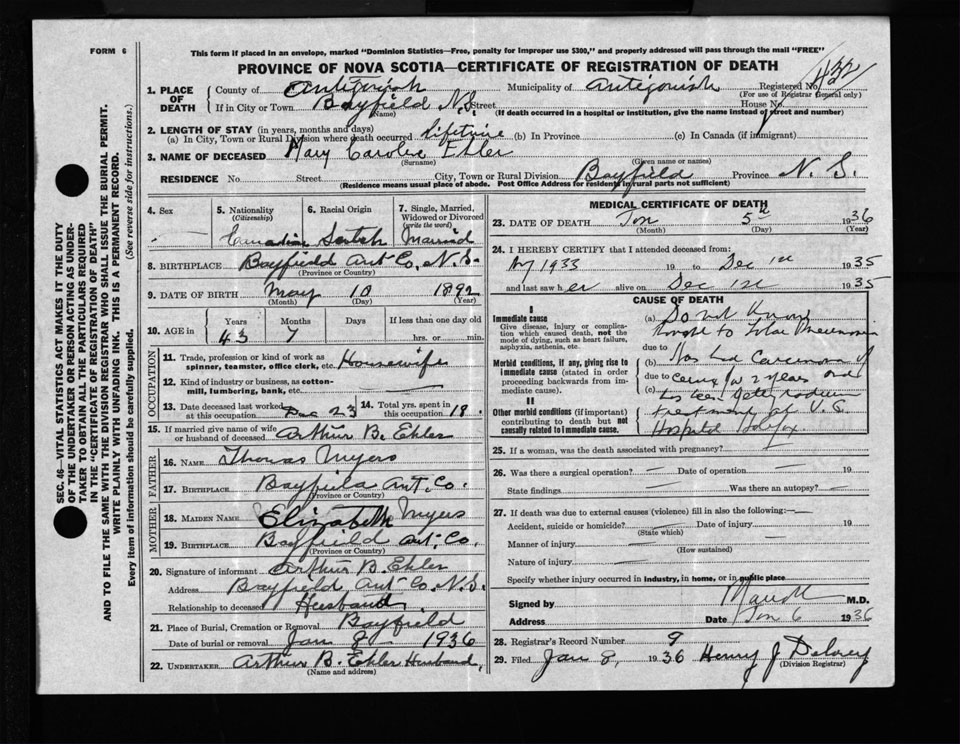 FORM 6
This form if placed in an envelope, marked "Dominion Statistics—Free, penalty for improper use $300," and properly addressed will pass through the mail "FREE"
PROVINCE OF NOVA SCOTIA—CERTIFICATE OF REGISTRATION OF DEATH
432
1. PLACE OF DEATH County of Antigonish Municipality of Antigonish Registered No.
(For use of Registrar General only)
If in City or Town Bayfield N.S. Street House No.
(Name) (If death occurred in a hospital or institution, give the name instead of street and number)
2. LENGTH OF STAY (in years, months and days)
(a) In City, Town or Rural Division where death occurred lifetime (b) In Province (c) In Canada (if immigrant)
3. NAME OF DECEASED Mary Ehler
(Surname) (Given name or names)
RESIDENCE No. Street City, Town or Rural Division Bayfield Province N. S.
(Residence means usual place of abode. Post Office Address for residents in rural parts not sufficient)
4. Sex 5. Nationality (Citizenship) 6. Racial Origin 7. Single, Married, Widowed or Divorced (write the word)
— Canadian Scotch Married
8. BIRTHPLACE Bayfield Ant Co. N.S.
(Province or Country)
9. DATE OF BIRTH May 10 1892
(Month) (Day) (Year)
10. AGE in Years Months Days If less than one day old
43 7 hrs. or min.
OCCUPATION
11. Trade, profession or kind of work as spinner, teamster, office clerk, etc. Housewife
12. Kind of industry or business, as cotton-mill, lumbering, bank, etc. —
13. Date deceased last worked at this occupation Dec 23 14. Total yrs. spent in this occupation 18.
15. If married give name of wife or husband of deceased Arthur B. Ehler
FATHER
16. NAME Thomas Myers
17. BIRTHPLACE Bayfield Ant. Co.
(Province or Country)
MOTHER
18. MAIDEN NAME Elizabeth Myers
19. BIRTHPLACE Bayfield Ant. Co.
(Province or Country)
20. Signature of informant Arthur B. Ehler
Address Bayfield Ant Co. N.S.
Relationship to deceased Husband
21. Place of Burial, Cremation or Removal Bayfield
Date of burial or removal Jan 8 1936
22. UNDERTAKER Arthur B. Ehler Husband,
(Name and address)
MEDICAL CERTIFICATE OF DEATH
23. DATE OF DEATH Jan 5th 1936
(Month) (Day) (Year)
24. I HEREBY CERTIFY that I attended deceased from:
1933 19 to Dec 1st 1935
and last saw her alive on Dec 1st 1935
CAUSE OF DEATH
I
Immediate cause
Give disease, injury or complication which caused death, not the mode of dying, such as heart failure, asphyxia, asthenia, etc.
Morbid conditions, if any, giving rise to immediate cause (stated in order proceeding backwards from immediate cause).
II
Other morbid conditions (if important) contributing to death but not causally related to immediate cause.
(a) Do not know
to Lobar Pneumonia
due to
(b) Has had Carcinoma of
due to cervix for 2 years and
(c) has been radium
treatment at V. G.
Hospital Halifax.
25. If a woman, was the death associated with pregnancy?
26. Was there a surgical operation? — Date of operation — 19
State findings — Was there an autopsy? —
27. If death was due to external causes (violence) fill in also the following:—
Accident, suicide or homicide? Date of injury 19
(State which)
Manner of injury
(How sustained)
Nature of injury
Specify whether injury occurred in industry, in home, or in public place
Signed by M.D.
Address Date Jan 6 1936
28. Registrar's Record Number 9
29. Filed Jan 8, 1936 Henry J Delorey
(Division Registrar)
SEC. 46—VITAL STATISTICS ACT MAKES IT THE DUTY OF THE UNDERTAKER OR PERSON ACTING AS UNDERTAKER TO OBTAIN ALL THE PARTICULARS REQUIRED IN THE "CERTIFICATE OF REGISTRATION OF DEATH"
AND TO FILE THE SAME WITH THE DIVISION REGISTRAR WHO SHALL ISSUE THE BURIAL PERMIT.
WRITE PLAINLY WITH UNFADING INK. THIS IS A PERMANENT RECORD.
Every item of information should be carefully supplied. (See reverse side for instructions.)